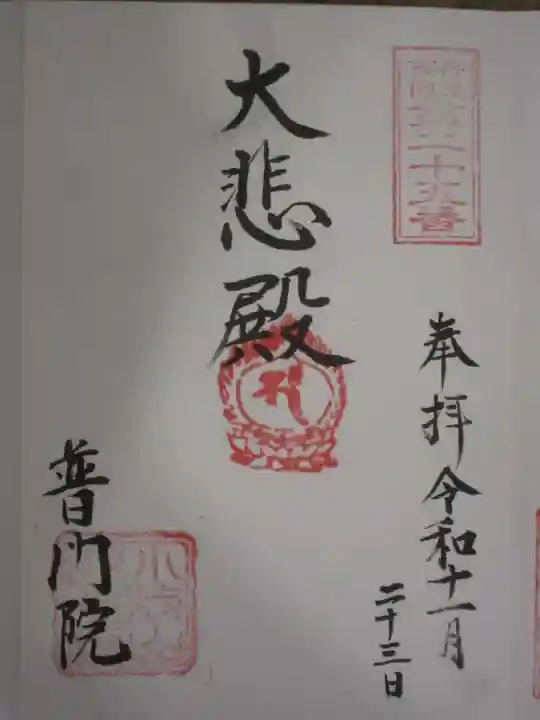 第二十五番
奉拝 令和十一月
二十三日
大悲殿
普門院